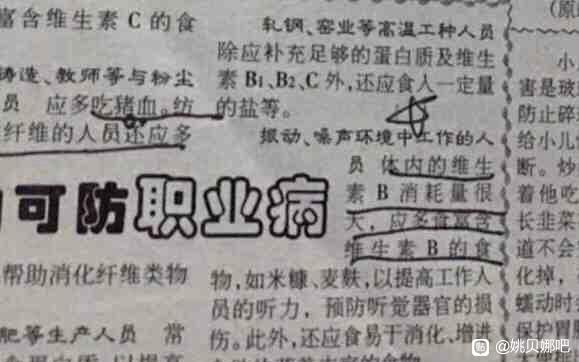 富含维生素C的食
铸造、教师等与粉尘
员 应多吃猪血。纺
纤维的人员还应多
可防职业病
帮助消化纤维类物
肥等生产人员 常
轧钢、窑业等高温工种人员
除应补充足够的蛋白质及维生
素B1、B2、C外,还应食人一定量
的盐等。
振动、噪声环境中工作的人
员 体内的维生
素B消耗量很
大,应多食富含
维生素B的食
物,如米糠、麦麸,以提高工作人
员的听力，预防听觉器官的损
伤。此外,还应食于消化、增进
(原
小
害是玻
防止碎
给小儿
断。炒
着他吃
长韭菜
道不会
化掉，
蠕动时
保护胃
@姚贝娜吧